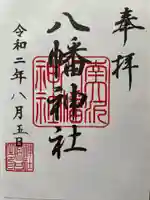 奉拝
八幡神社
令和二年八月五日